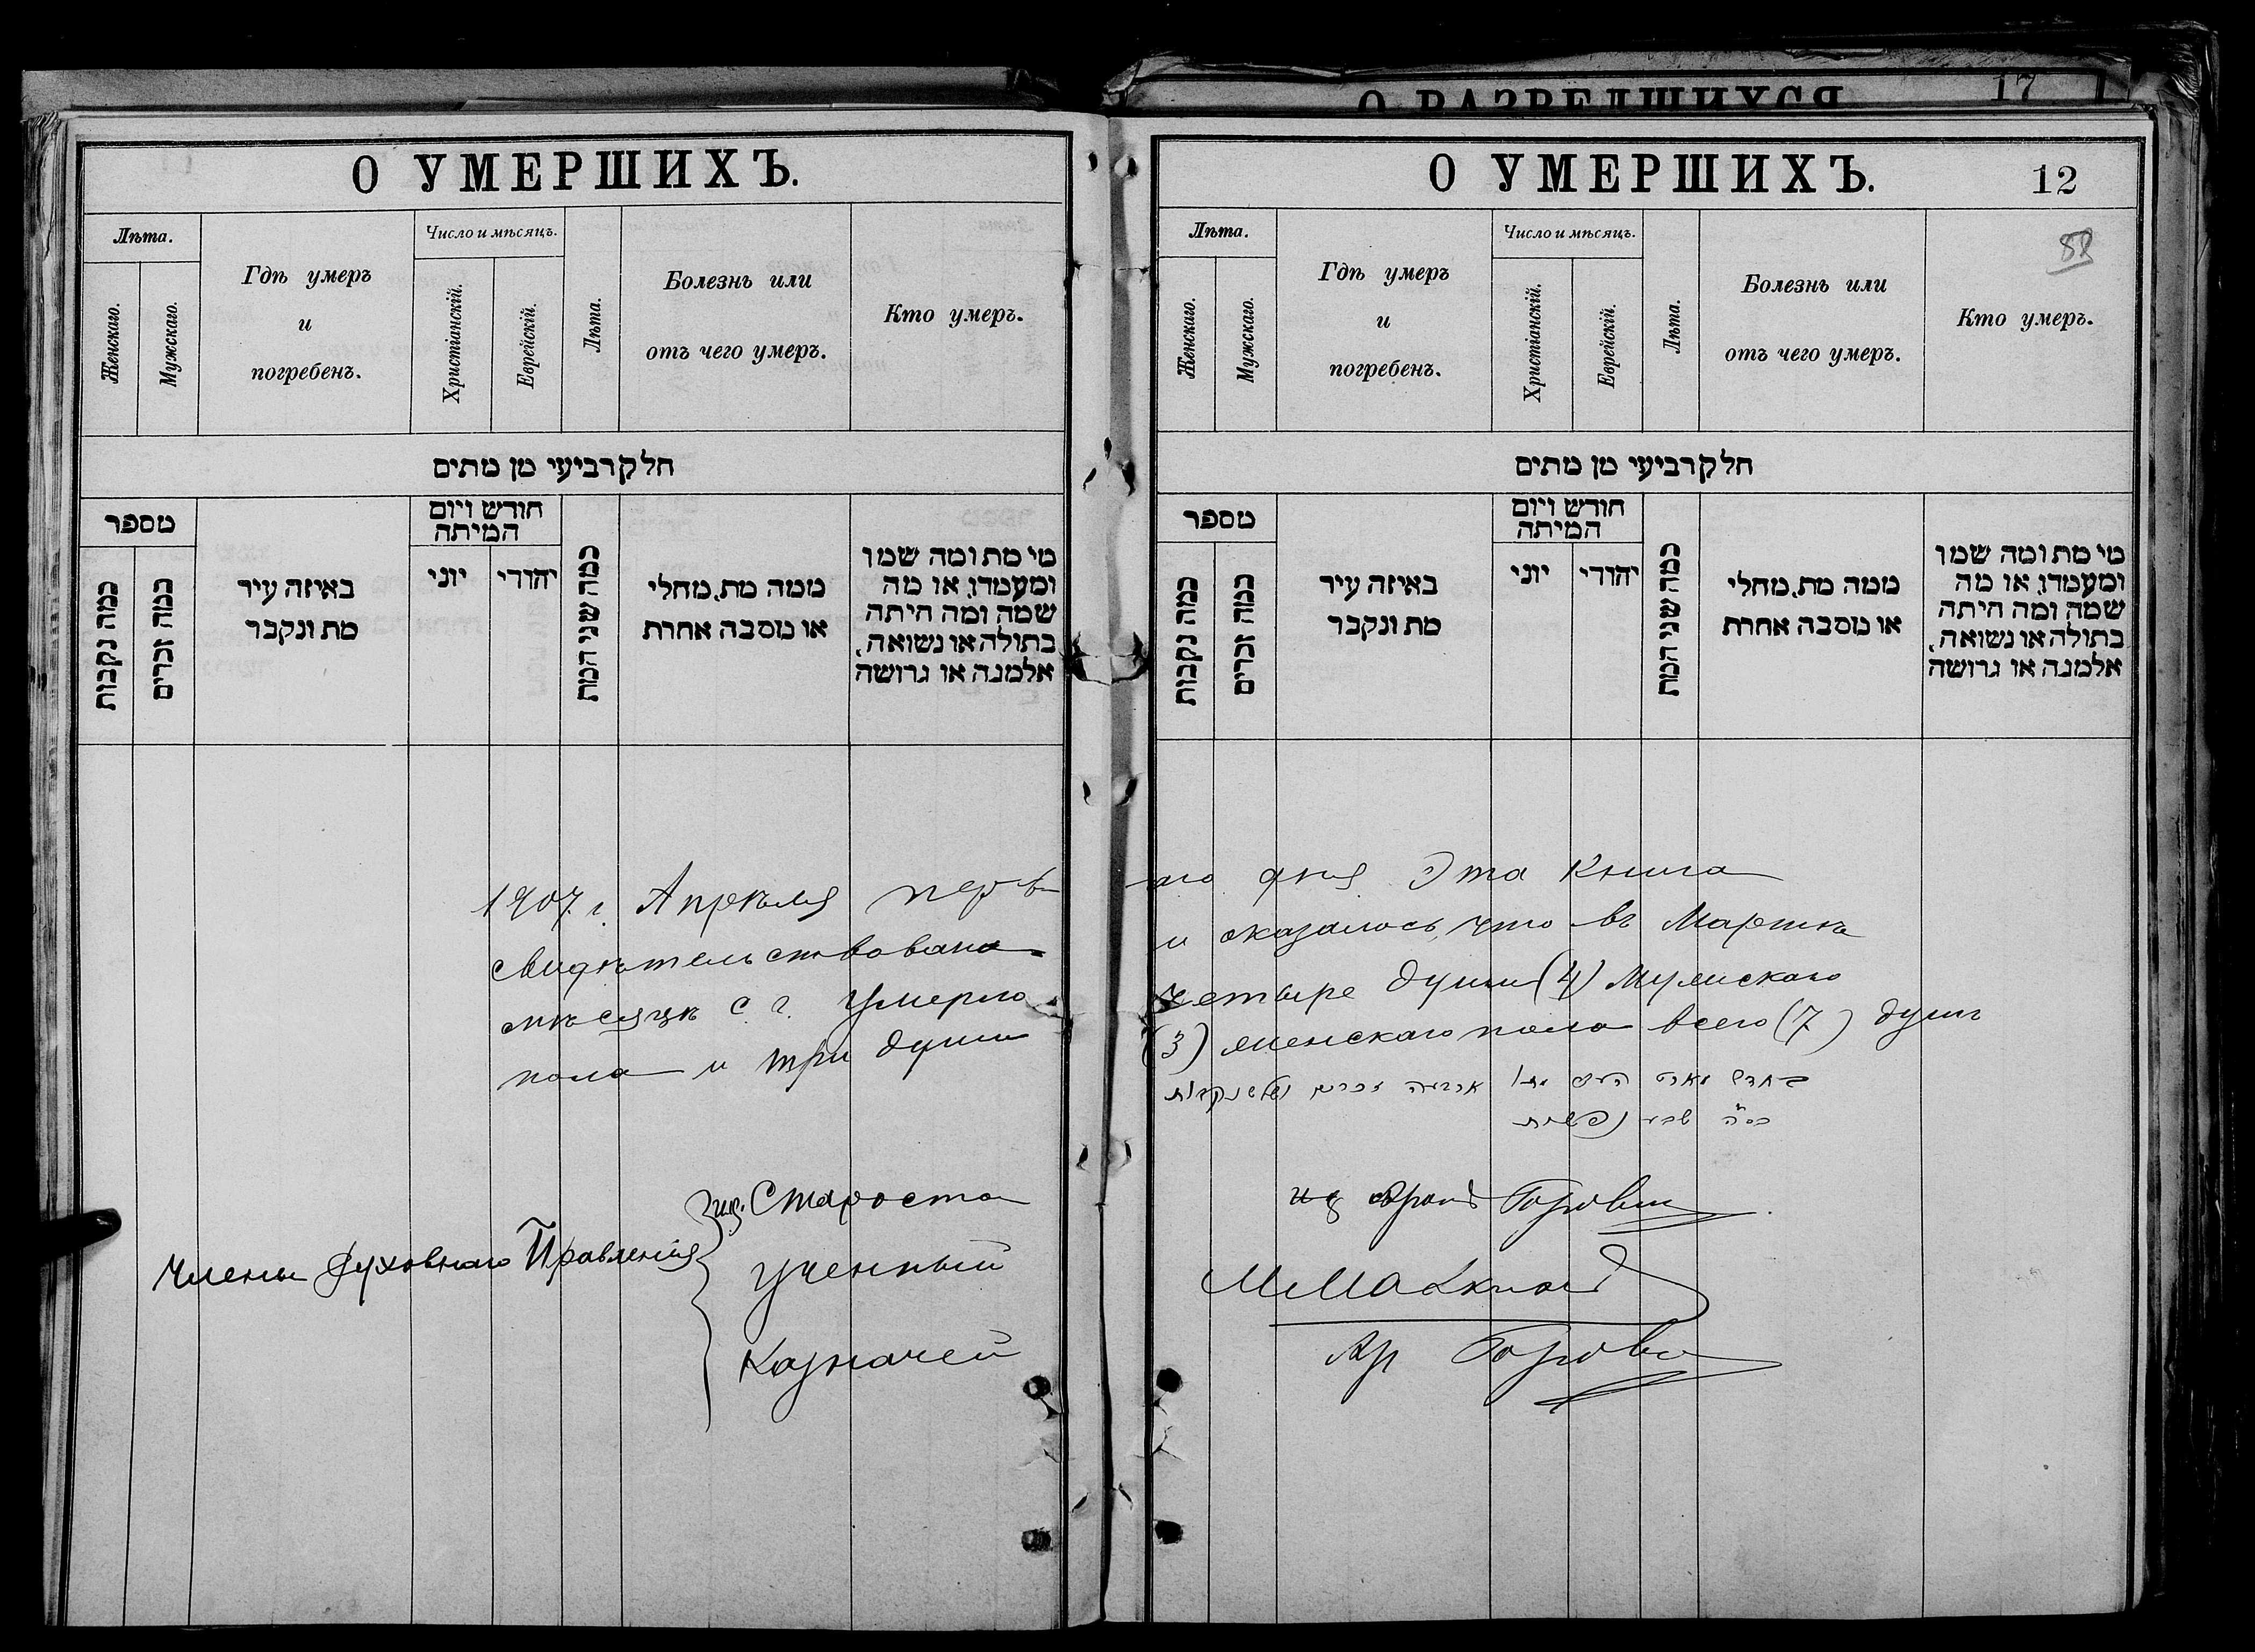 О РАЗВЕДШИХСЯ
17
О УМЕРШИХЪ.
Лѣта.
Женскаго.
Мужскаго.
Гдѣ умеръ
и
погребенъ.
Число и мѣсяцъ.
Христіанскій.
Еврейскій.
Лѣта.
Болезнь или
отъ чего умеръ.
Кто умеръ.
חלק רביעי מן מתים
מספר
כמה נקבות
כמה זכרים
באיזה עיר
מת ונקבר
חודש ויום
המיתה
יוני
יהודי
כמה שני המת
ממה מת, מחלי
או מסבה אחרת
מי מת ומה שמו
ומעמדו, או מה
שמה ומה היתה
בתולה או נשואה,
אלמנה או גרושה
О УМЕРШИХЪ.
12
Лѣта.
Женскаго.
Мужскаго.
Гдѣ умеръ
и
погребенъ.
Число и мѣсяцъ.
Христіанскій.
Еврейскій.
Лѣта.
Болезнь или
отъ чего умеръ.
Кто умеръ.
חלק רביעי מן מתים
מספר
כמה נקבות
כמה זכרים
באיזה עיר
מת ונקבר
חודש ויום
המיתה
יוני
יהודי
כמה שני המת
ממה מת, מחלי
או מסבה אחרת
מי מת ומה שמו
ומעמדו, או מה
שמה ומה היתה
בתולה או נשואה,
אלמנה או גרושה
1907 г. Апрѣля перв-аго дня Эта Книга
свидѣтельствована и оказалось, что въ Мартѣ
мѣсяцѣ с. г. умерло четыре души (4) мужскаго
пола и три души (3) женскаго пола всего (7) душъ
בחדש מארט מתו ארבעה זכרים ושלש נקבות
סה״כ שבע נפשות
Члены Духовнаго Правленія
Староста
Ученный
Казначей